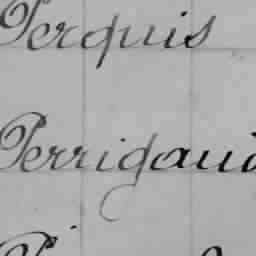 Perquis
Perrigaud